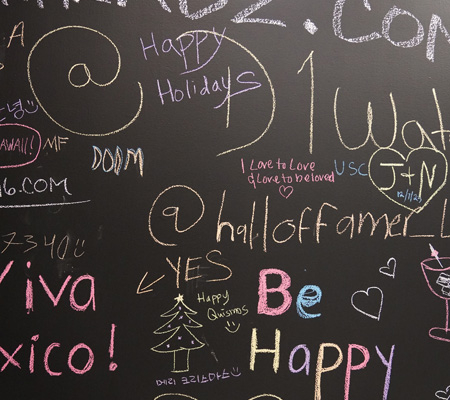 A
.Com
@
Happy
Holidays
D1Wat
녕
HAWAII!
MF
DOOM
I Love to Love
& Love to be loved
USC
J+N
16.COM
@halloffamer_L
7340
YES
Viva
Be
Happy
Quismos
xico!
Happy
메리 크리스마스